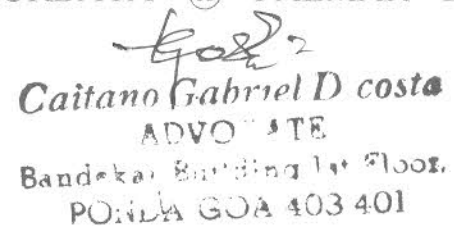 Caitano Gabriel D costa
ADVOCATE
Bandekar Building 1st Floor,
PONDA GOA 403 401